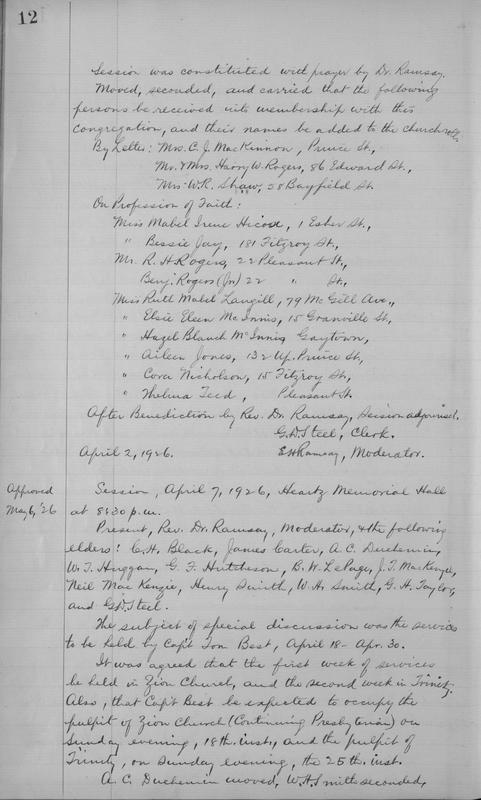 12
Session was constituted with prayer by Dr. Ramsay.
Moved, seconded, and carried that the following
persons be received into membership with this
congregation, and their names be added to the church rolls.
By Letter: Mrs. C. J. MacKinnon, Prince St.,
Mr. & Mrs. Harry W. Rogers, 86 Edward St.,
Mrs. W.R. Shaw, 58 Bayfield St.
On Profession of Faith:
Miss Mabel Irene Hicox, 1 Esher St.,
" Bessie Jay, 181 Fitzroy St.,
Mr. R. H. Rogers, 22 Pleasant St.,
Benj. Rogers (Jr) 22 " St.,
Miss Ruth Mabel Langill, 79 McGill Ave.,
" Elsie Eleen McInnis, 15 Granville St,
" Hazel Blanch McInnis, Gaytown,
" Aileen Jones, 132 Up. Prince St,
" Cora Nicholson, 15 Fitzroy St,
" Thelma Teed, Pleasant St.
After Benediction by Rev. Dr. Ramsay, Session adjourned.
G.D. Steel, Clerk.
April 2, 1926. Ramsay, Moderator.
Approved
May 6, '26
Session, April 7, 1926, Heartz Memorial Hall
at 8:30 p.m.
Present, Rev. Dr. Ramsay, Moderator, & the following
elders: C.H. Black, James Carter, A. C. Duchemin,
W. T. Huggan, G. F. Hutcheson, B. W. LePage, J. T. MacKenzie,
Neil MacKenzie, Henry Smith, W. H. Smith, G. H. Taylor,
and G.D. Steel.
The subject of special discussion was the services
to be held by Capt Tom Best, April 18 - Apr. 30.
It was agreed that the first week of services
be held in Zion Church, and the second week in Trinity.
Also, that Capt Best be expected to occupy the
pulpit of Zion Church (Continuing Presbyterian) on
Sunday evening, 18th. inst., and the pulpit of
Trinity, on Sunday evening, the 25th. inst.
A. C. Duchemin moved, W.H. Smith seconded,